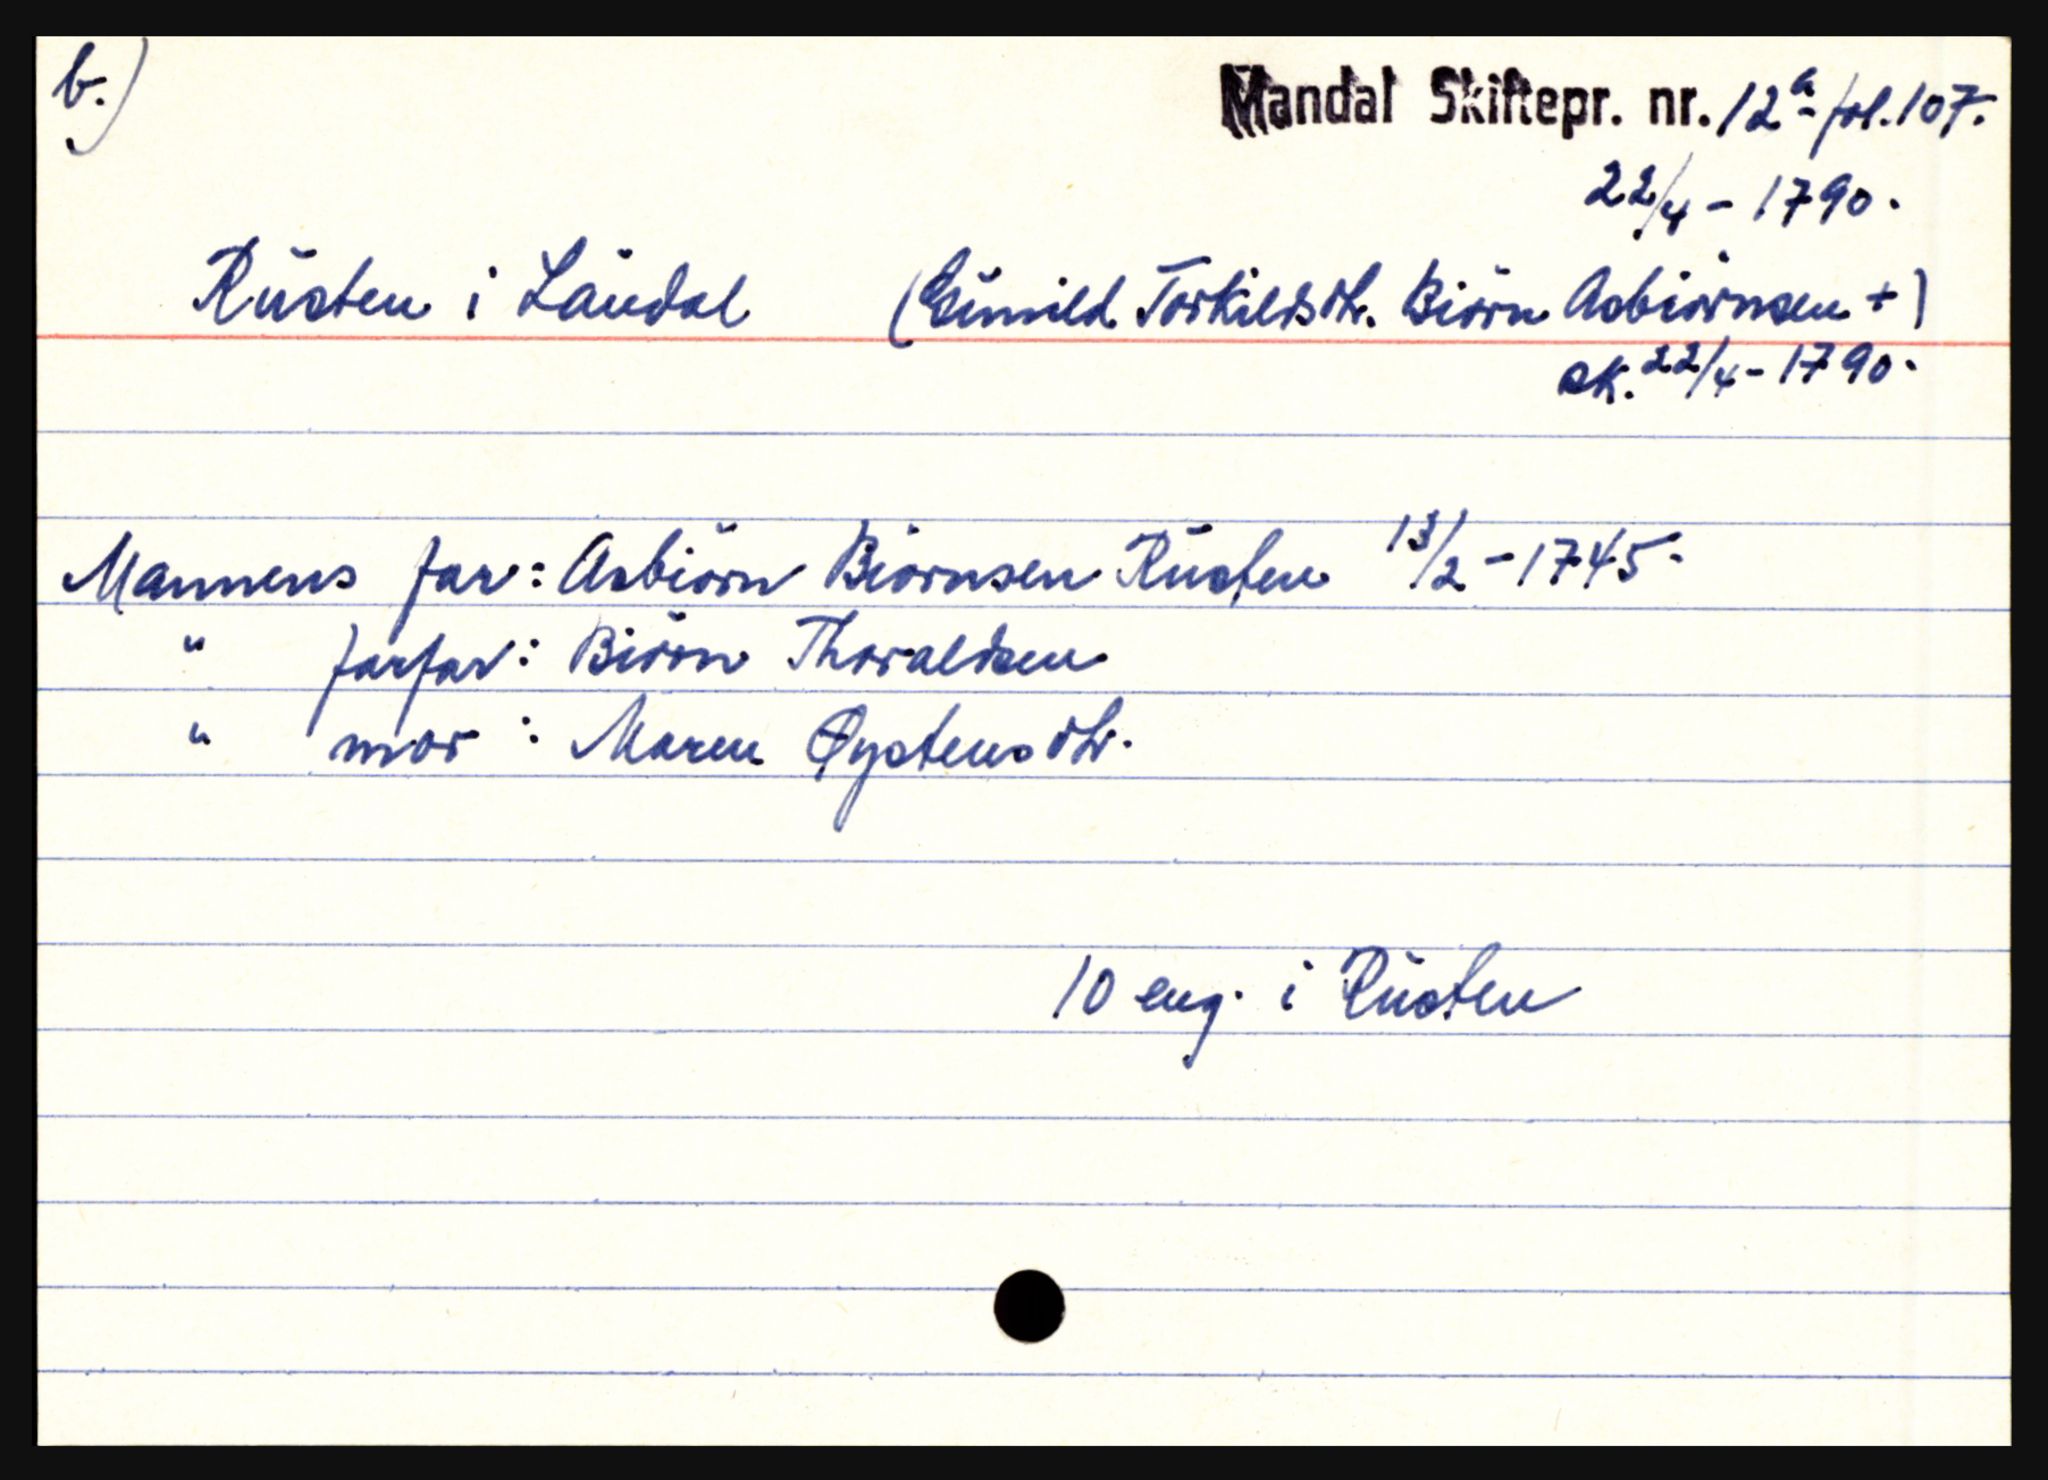 b.)
Mandal Skiftepr. nr. 12a- fol. 107.
22/4 - 1790.
Rusten i Laudal (Gunild Torkildsdtr. Biörn Asbiörnsen +)
sk. 22/4 - 1790.
Mannens far: Asbiörn Biörnsen Rusten 13/2 - 1745.
" farfar: Biörn Thoraldsen
" mor: Maren Øystensdtr.
10 eng. i Rusten